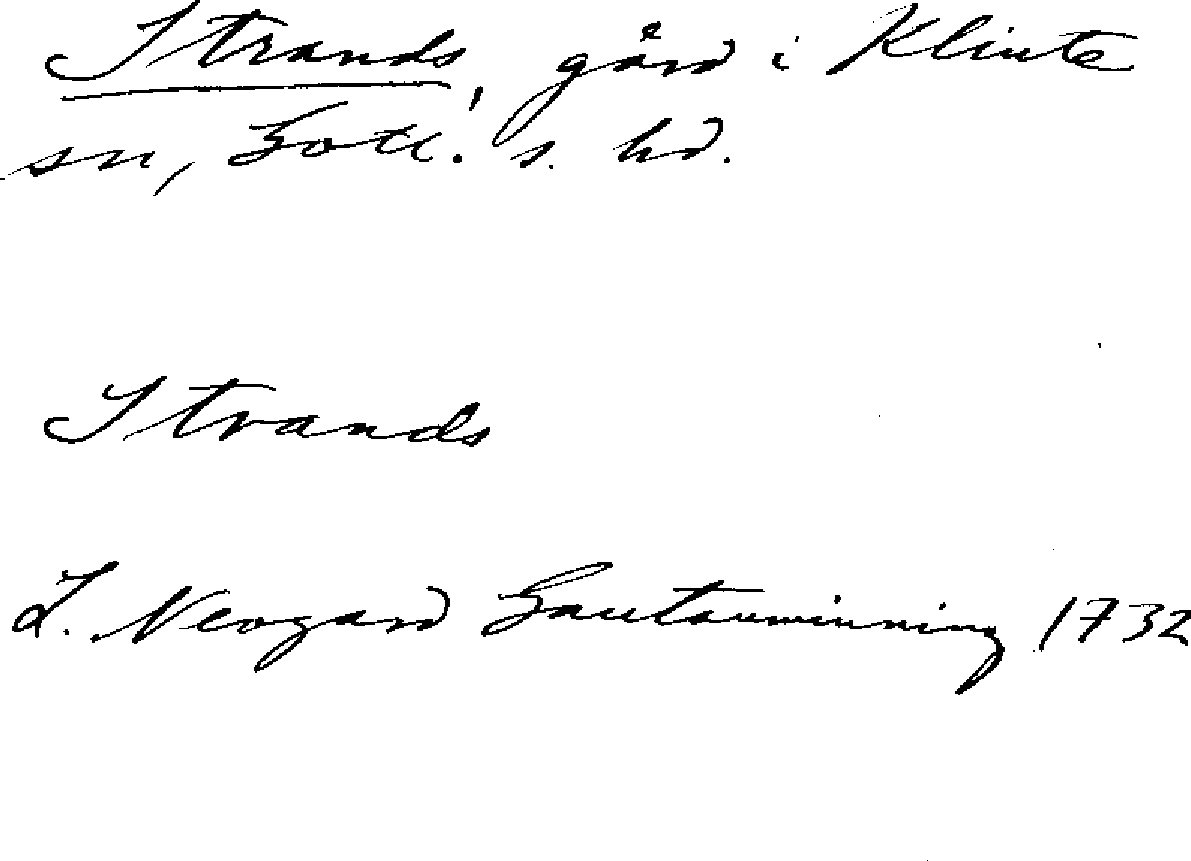 Strands, gård i Klinte
sn, Gotl. s. hd.
Strands
L. Neogard Gautauminning 1732